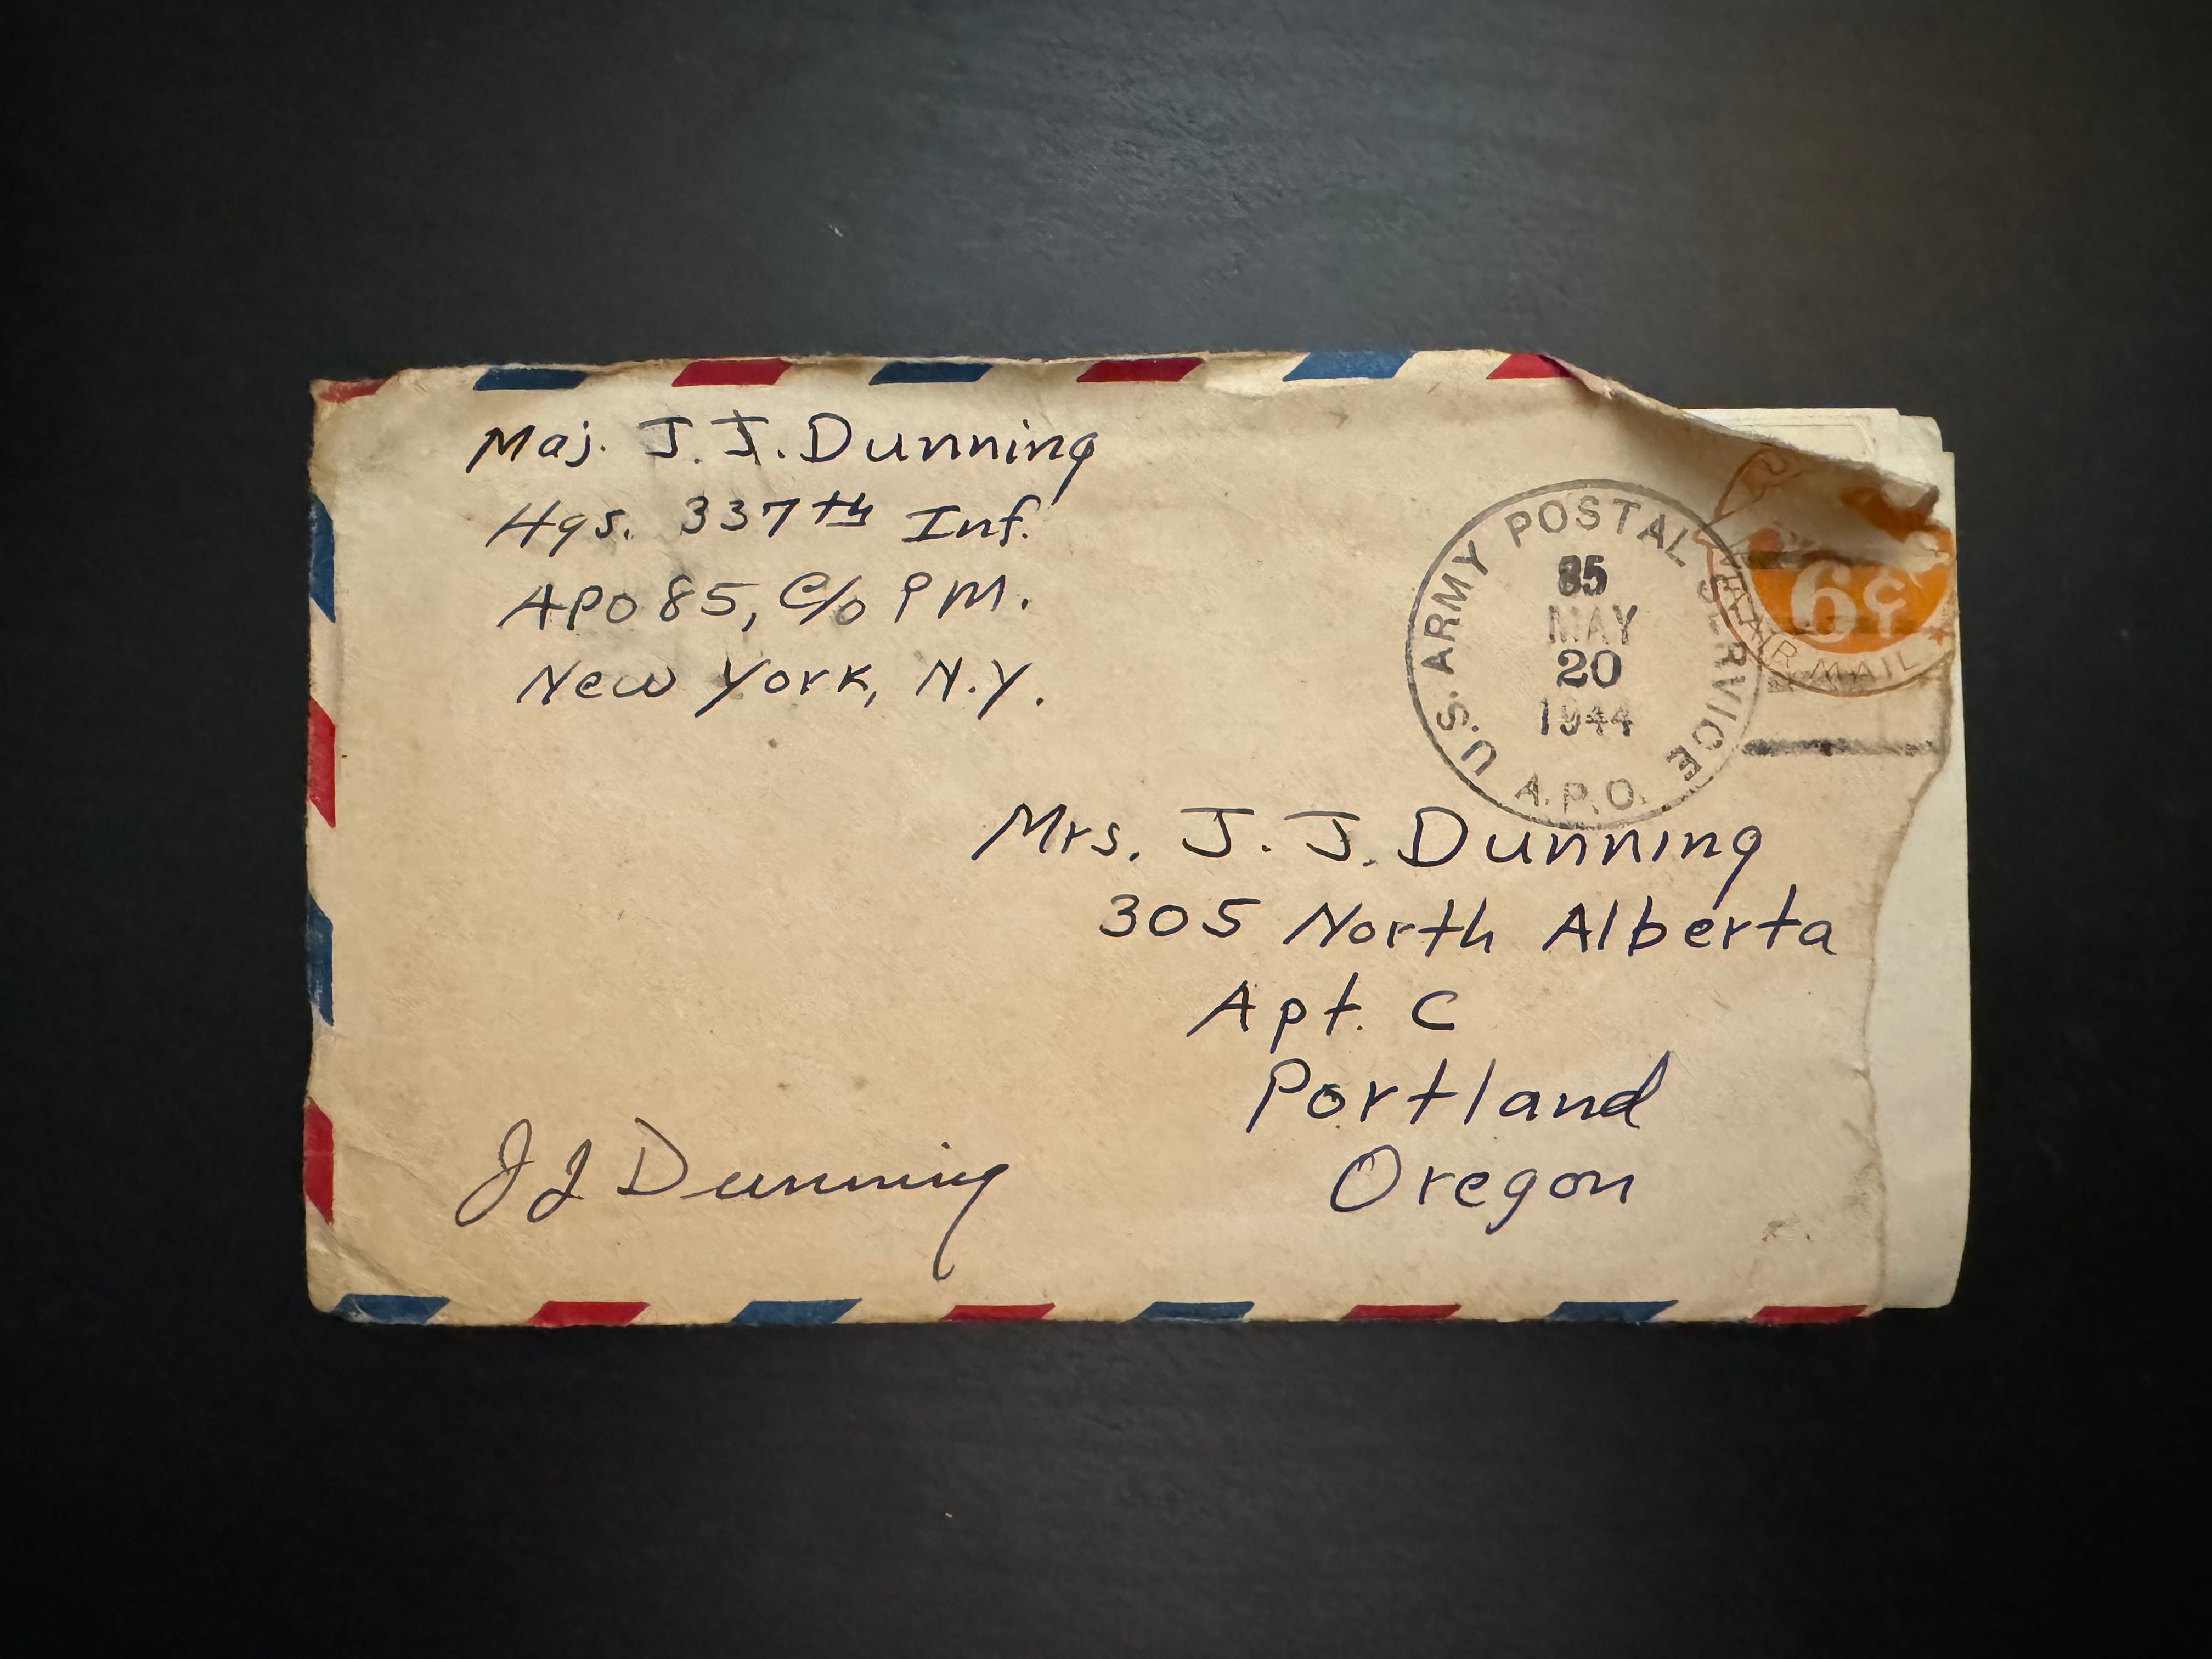 Maj. J. J. Dunning
Hqs. 337th Inf.
APO 85, c/o PM.
New York, N.Y.
U.S. ARMY POSTAL SERVICE
A.P.O.
85
MAY
20
1944
6¢
AIR MAIL
Mrs. J. J. Dunning
305 North Alberta
Apt. C
Portland
Oregon
JJ Dunning